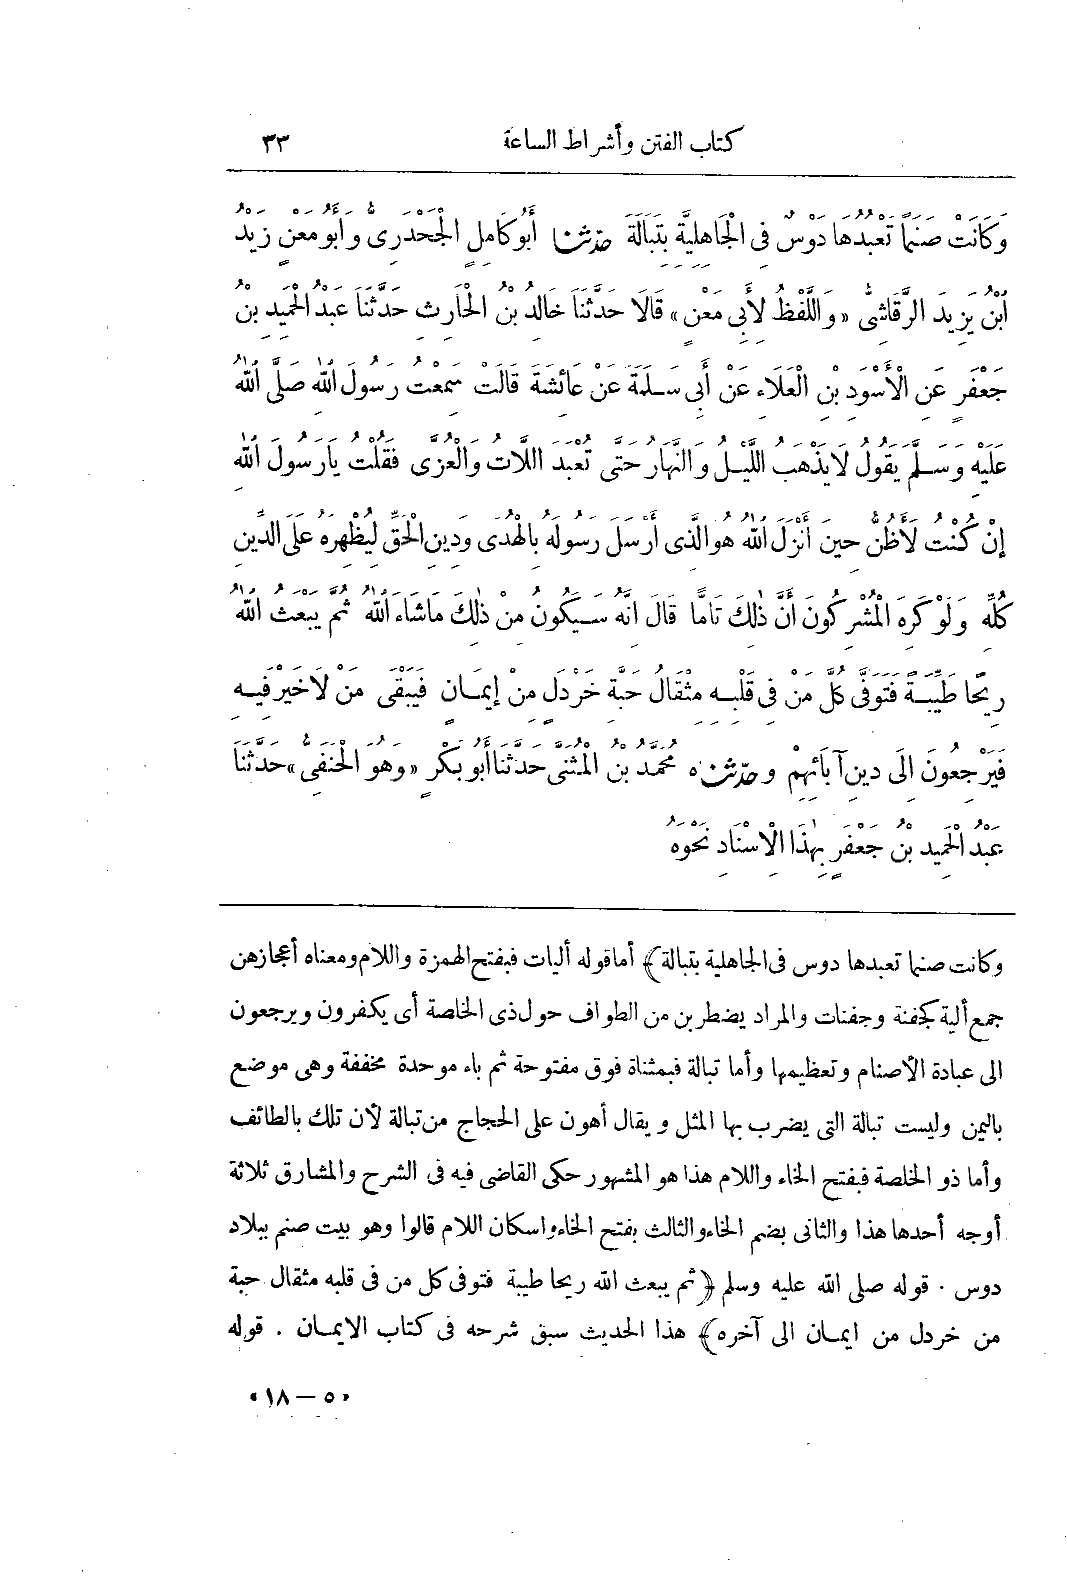 كتاب الفتن وأشراط الساعة ٣٣
وَكَانَتْ صَنَمًا تَعْبُدُهَا دَوْسٌ فِى الْجَاهِلِيَّةِ بِتَبَالَةَ حدثنا أَبُو كَامِلٍ الْجَحْدَرِىُّ وَأَبُو مَعْنٍ زَيْدُ
ابْنُ يَزِيدَ الرَّقَاشِىُّ «وَاللَّفْظُ لِأَبِى مَعْنٍ» قَالَا حَدَّثَنَا خَالِدُ بْنُ الْحَارِثِ حَدَّثَنَا عَبْدُ الْحَمِيدِ بْنُ
جَعْفَرٍ عَنِ الْأَسْوَدِ بْنِ الْعَلَاءِ عَنْ أَبِى سَلَمَةَ عَنْ عَائِشَةَ قَالَتْ سَمِعْتُ رَسُولَ اللهِ صَلَّى اللهُ
عَلَيْهِ وَسَلَّمَ يَقُولُ لَا يَذْهَبُ اللَّيْلُ وَالنَّهَارُ حَتَّى تُعْبَدَ اللَّاتُ وَالْعُزَّى فَقُلْتُ يَارَسُولَ اللهِ
إِنْ كُنْتُ لَأَظُنُّ حِينَ أَنْزَلَ اللهُ هُوَ الَّذِى أَرْسَلَ رَسُولَهُ بِالْهُدَى وَدِينِ الْحَقِّ لِيُظْهِرَهُ عَلَى الدِّينِ
كُلِّهِ وَلَوْ كَرِهَ الْمُشْرِكُونَ أَنَّ ذٰلِكَ تَامًّا قَالَ إِنَّهُ سَيَكُونُ مِنْ ذٰلِكَ مَاشَاءَ اللهُ ثُمَّ يَبْعَثُ اللهُ
رِيحًا طَيِّبَةً فَتَوَفَّى كُلَّ مَنْ فِى قَلْبِهِ مِثْقَالُ حَبَّةِ خَرْدَلٍ مِنْ إِيمَانٍ فَيَبْقَى مَنْ لَاخَيْرَ فِيهِ
فَيَرْجِعُونَ إِلَى دِينِ آبَائِهِمْ وحدثناه مُحَمَّدُ بْنُ الْمُثَنَّى حَدَّثَنَا أَبُو بَكْرٍ «وَهُوَ الْحَنَفِىُّ» حَدَّثَنَا
عَبْدُ الْحَمِيدِ بْنُ جَعْفَرٍ بِهٰذَا الْإِسْنَادِ نَحْوَهُ
وكانت صنما تعبدها دوس فى الجاهلية بتبالة﴾ أما قوله أليات فبفتح الهمزة واللام ومعناه أعجازهن
جمع ألية كجفنة وجفنات والمراد يضطربن من الطواف حول ذى الخلصة أى يكفرون ويرجعون
الى عبادة الأصنام وتعظيمها وأما تبالة فبمثناة فوق مفتوحة ثم باء موحدة مخففة وهى موضع
باليمن وليست تبالة التى يضرب بها المثل ويقال أهون على الحجاج من تبالة لأن تلك بالطائف
وأما ذو الخلصة فبفتح الخاء واللام هذا هو المشهور حكى القاضى فيه فى الشرح والمشارق ثلاثة
أوجه أحدها هذا والثانى بضم الخاء والثالث بفتح الخاء واسكان اللام قالوا وهو بيت صنم ببلاد
دوس . قوله صلى الله عليه وسلم ﴿ثم يبعث الله ريحا طيبة فتوفى كل من فى قلبه مثقال حبة
من خردل من ايمان الى آخره﴾ هذا الحديث سبق شرحه فى كتاب الايمان . قوله
«٥ – ١٨»